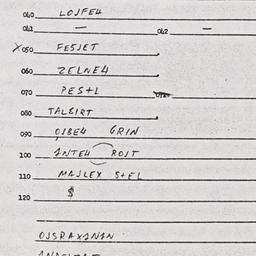 040 LOJFEH
041 — 042 —
X050 FESJET
060 ZELNEH
070 PESTL
080 TALBIRT
090 OJBEH GRIN
100 ANTEH ROJT
110 MAJLEX STEL
120 $
OJSRAXANIN